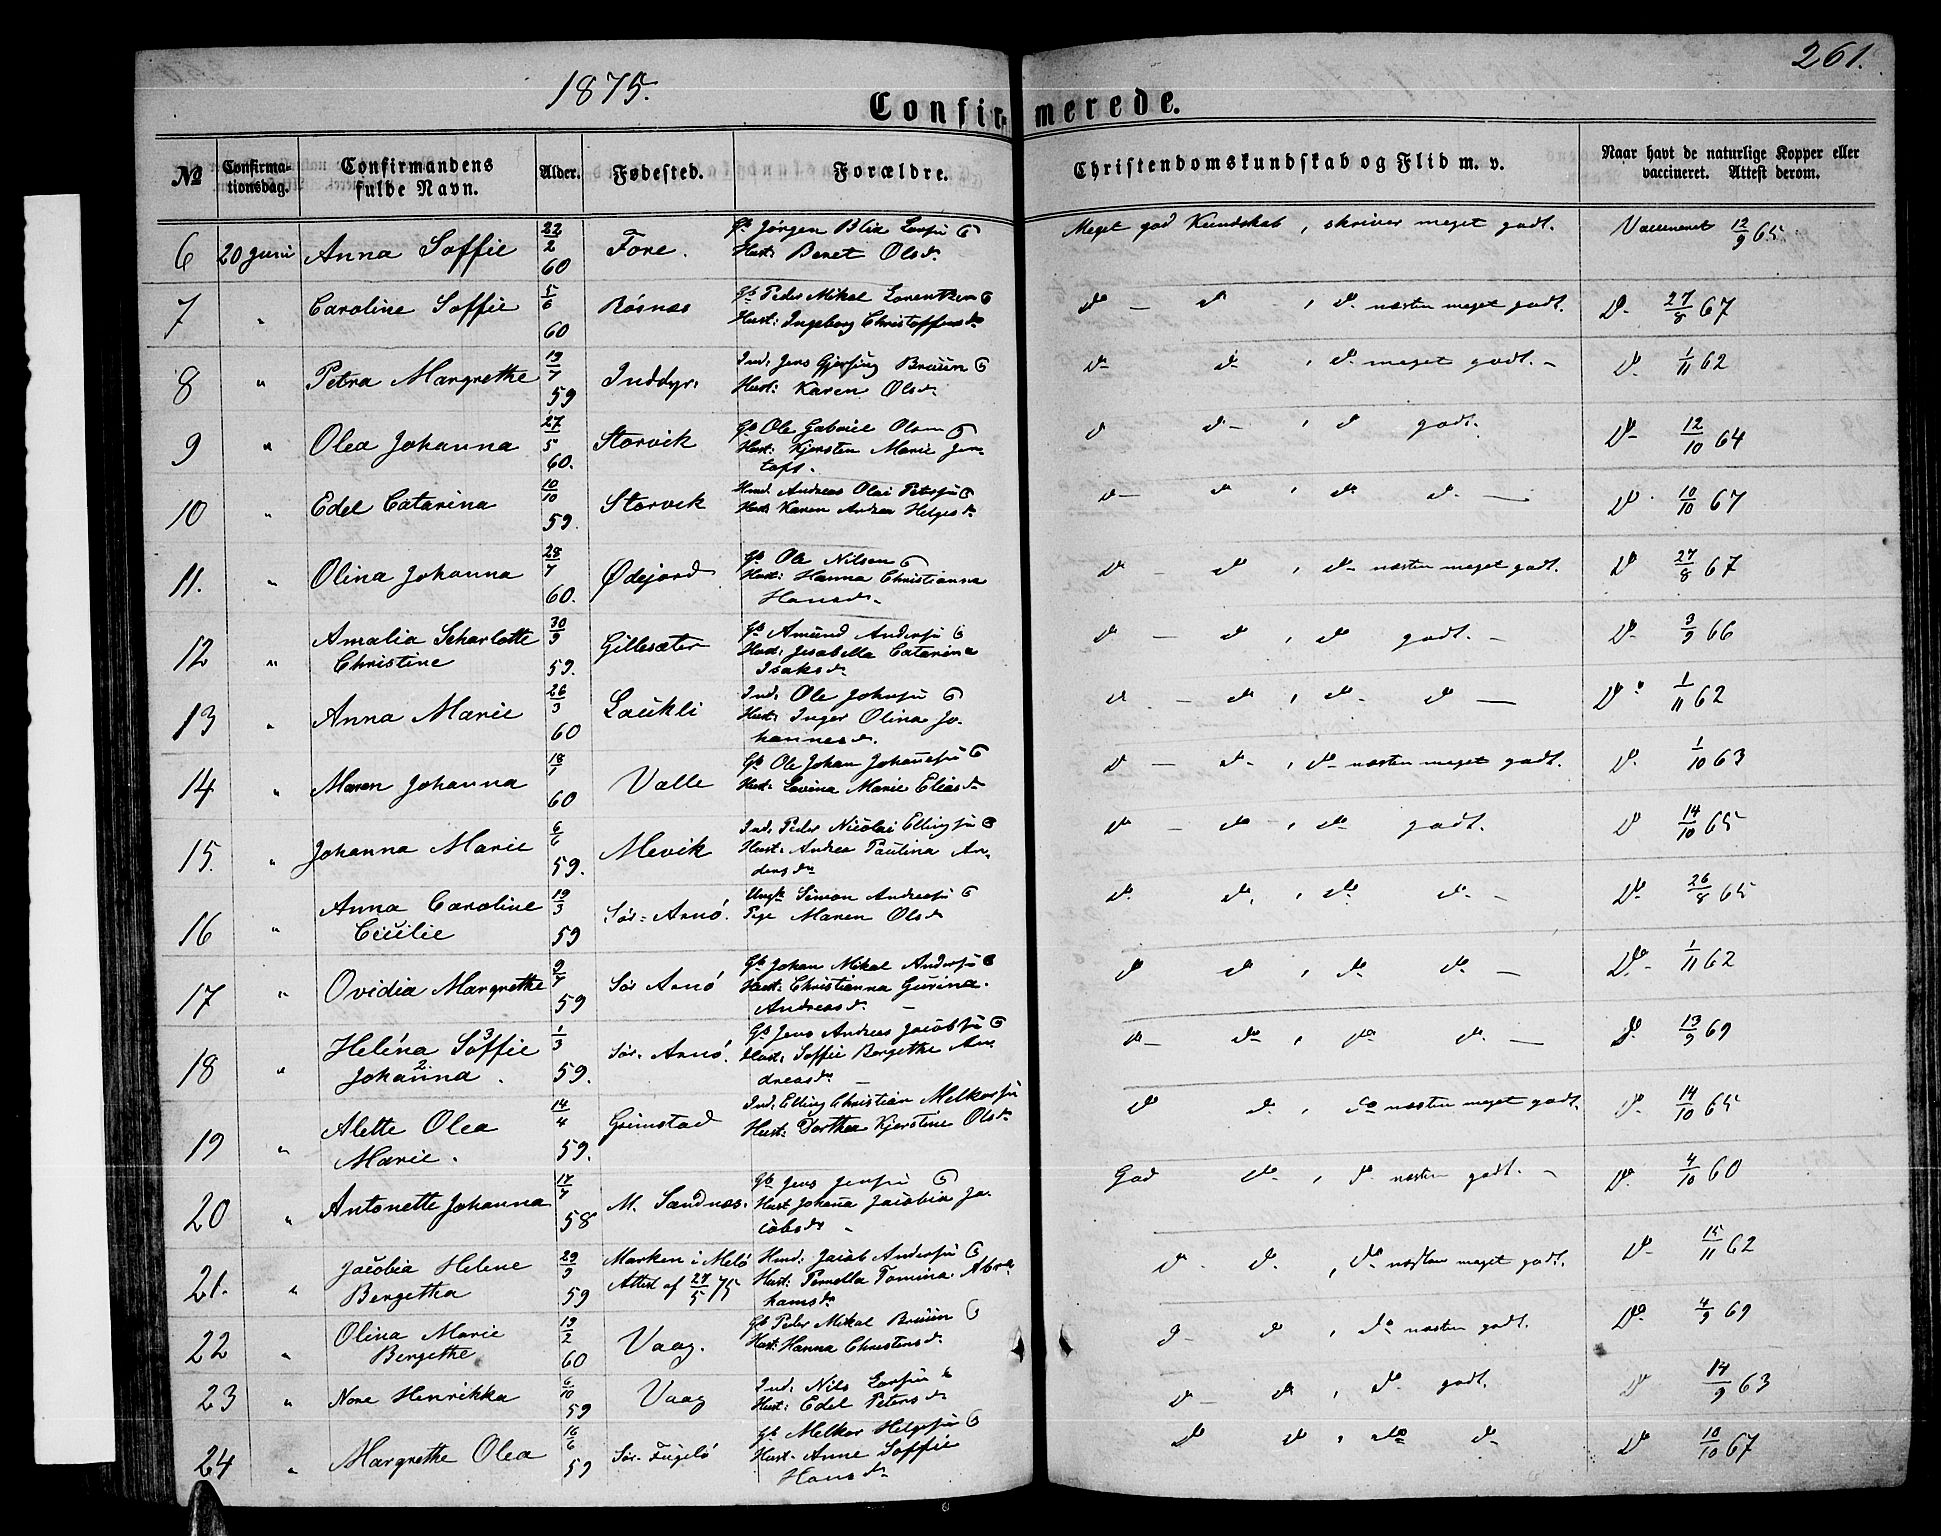 1875.
261.
Confirmerede.
№ Confirmationsdag. Confirmandens fulde Navn. Alder. Fødested. Forældre. Christendomskundskab og Flid m. v. Naar havt de naturlige Kopper eller vaccineret. Attest derom.
6 20 Juni Anna Soffie 22/2 60 Fore. Gb Jørgen Blix Larssu Hust: Beret Olsdr. Meget god Kundskab, skriver meget godt. Vaccineret 12/9 65.
7 " Caroline Soffie 5/6 60 Røsnes Gb Peder Mikal Lorentzen Hust: Ingeborg Christoffersdr do — do, do næsten meget godt. Do 27/8 67
8 " Petra Margrethe 19/7 59 Inddyr. Ind: Jens Gjersing Bruun Hust: Karen Olsdr. do do, do meget godt. Do 1/11 62
9 " Olea Johanna 27/5 60. Storvik Gb Ole Gabriel Olsen Hust: Kjersten Marie Jentoft. do do, do godt. Do 12/10 64
10 " Edel Catarina 10/10 59. Storvik Hmd. Andreas Olai Peterssu Hust: Karen Andrea Helgesdr do do, do do — Do 10/10 67
11. " Olina Johanna 28/7 60. Ødejord Gb Ole Nilsen Hust: Hanna Christianna Hansdr. do — do, do næsten meget godt. Do 27/8 67
12 " Amalia Scharlotte Christine 30/9 59. Gillesæter Gb Amund Anderssu Hust: Jesabella Catarina Isaksdr do — do, do godt. Do 3/9 66
13 " Anna Marie 26/3 60 Laukli Ind: Ole Johnssu Hust: Inger Olina Johannesdr. do — do, do do — Do 1/11 62
14 " Maren Johanna 18/1 60 Valle Gb Ole Johan Johanssu Hust: Lovina Marie Eliasdr do — do, do næsten meget godt. Do 1/10 63
15. " Johanna Marie 6/6 59. Mevik Ind: Peder Nicolai Ellingssu Hust: Andrea Paulina Andersdr do — do, do godt. Do 14/10 65
16 " Anna Caroline Cecilie 19/3 59 Sør-Arnø. Ungk. Simon Andreassu Pige Maren Olsdr do do, do do — Do 26/8 65
17 " Ovidia Margrethe 9/7 59 Sør Arnø Gb Johan Mikal Anderssu Hust: Christianna Gurina. Andreasdr. do do, do do — Do 1/11 62
18 " Heléna Soffie 3 Johanna 2. 1/3 59. Sør-Arnø. Gb Jens Andreas Jacobssu Hust: Soffie Bergithe Andreasdr do do, do do — Do 13/9 69
19 " Alette Olea Marie. 14/4 59. Grimstad Ind: Elling Christian Melkorssu Hust: Dorthea Kjerstine Olsdr do do, do næsten meget godt. Do 14/10 65
20 " Antonette Johanna 17/7 58 M. Sandnæs. Gb Jens Jenssu Hust Johana Jacobia Jacobsdr God do, do næsten godt. Do 4/10 60
21. " Jacobia Helene Bergetha 29/9 59 Marken i Melø Attest af 27/5 75 Hmd: Jacob Anderssu Hust: Pernella Tomina Abrahamsdr do do, do næsten meget godt. Do 15/11 62
22 " Olina Marie Bergethe 19/2 60 Vaag. Gb Peder Mikal Bruun Hust: Hanna Christensdr. do do, do næsten godt. Do 4/9 69
23 " Nora Henrikka 6/10 59 Vaag Ind: Nils Larssu Hust: Edel Petersdr do do, do godt. Do 14/9 63
24 " Margrethe Olea 16/6 59 Sør-Fugelø Gb Melkor Helgessu Hust. Anne Soffie Hansdr do do, do do Do 10/10 67